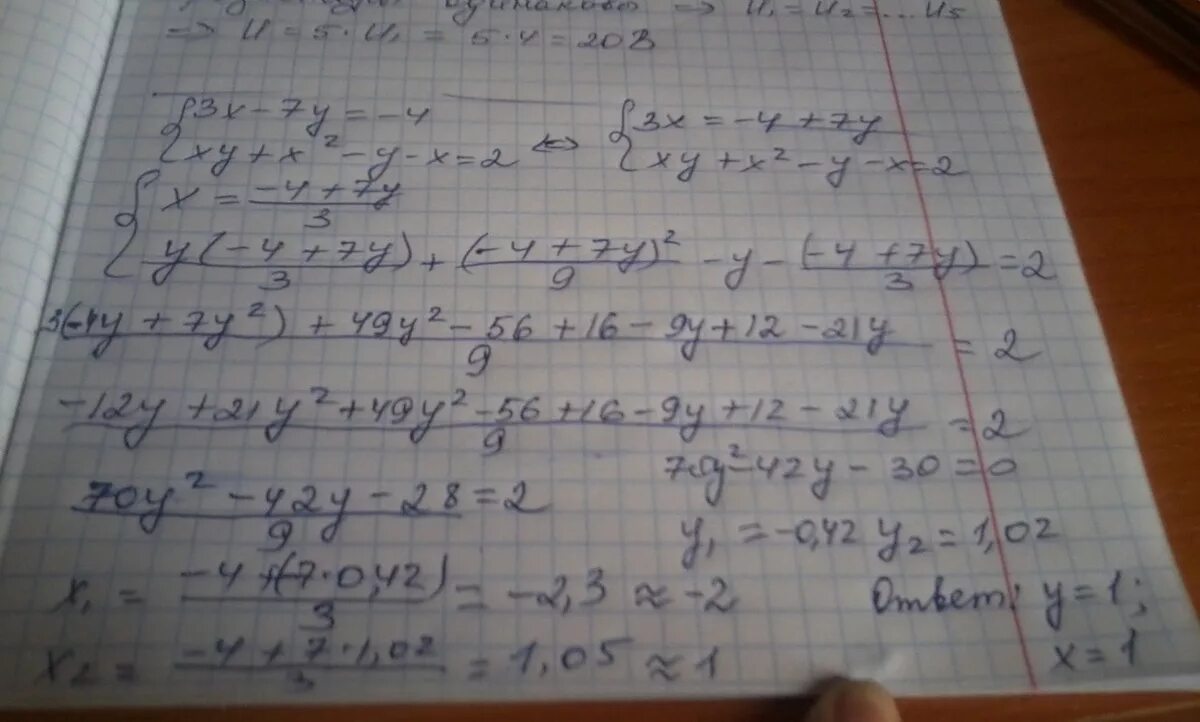 одинаковы => U₁ = U₂ = ... U₅
=> U = 5·U₁ = 5·4 = 20В
{3x - 7y = -4
{xy + x² - y - x = 2 <=> {3x = -4 + 7y
{xy + x² - y - x = 2
{x = (-4 + 7y)/3
{y(-4 + 7y)/3 + (-4 + 7y)²/9 - y - (-4 + 7y)/3 = 2
(3(-4y + 7y²) + 49y² - 56 + 16 - 9y + 12 - 21y)/9 = 2
(-12y + 21y² + 49y² - 56 + 16 - 9y + 12 - 21y)/9 = 2
(70y² - 42y - 28)/9 = 2
70y² - 42y - 30 = 0
y₁ = -0,42 y₂ = 1,02
x₁ = (-4 + (7·0,42))/3 = -2,3 ≈ -2
x₂ = (-4 + 7·1,02)/3 = 1,05 ≈ 1
Ответ: y = 1;
x = 1